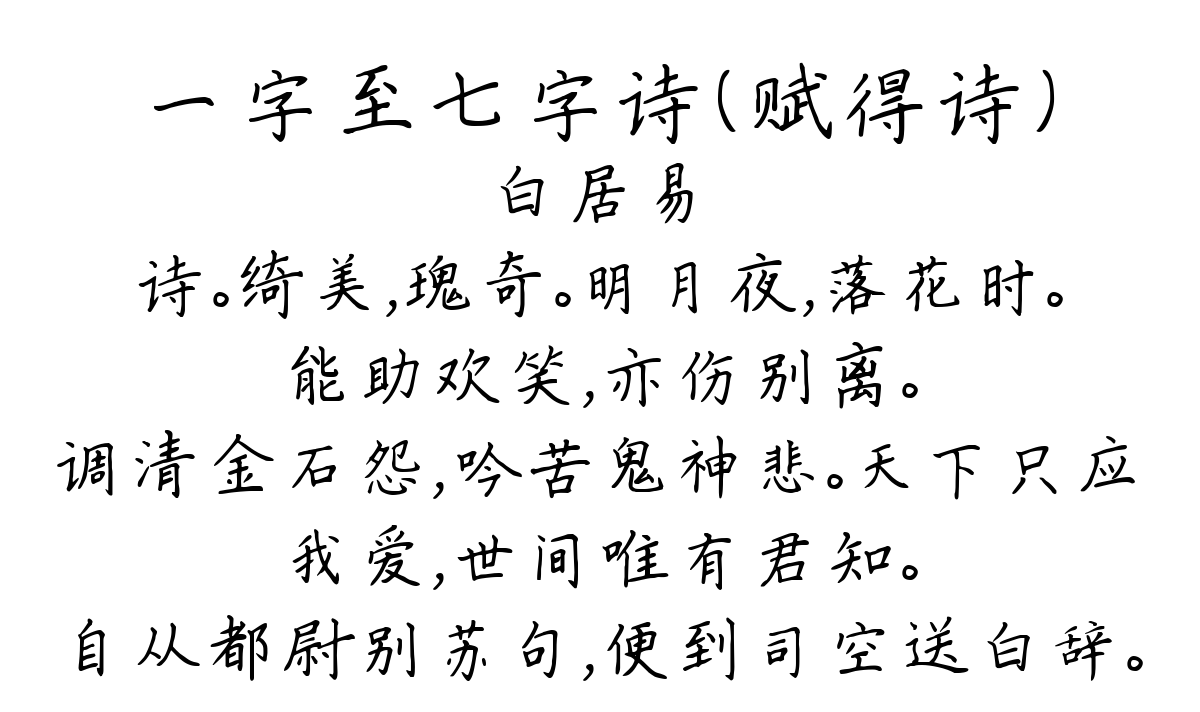 一字至七字诗(赋得诗)
白居易
诗。绮美,瑰奇。明月夜,落花时。
能助欢笑,亦伤别离。
调清金石怨,吟苦鬼神悲。天下只应
我爱,世间唯有君知。
自从都尉别苏句,便到司空送白辞。